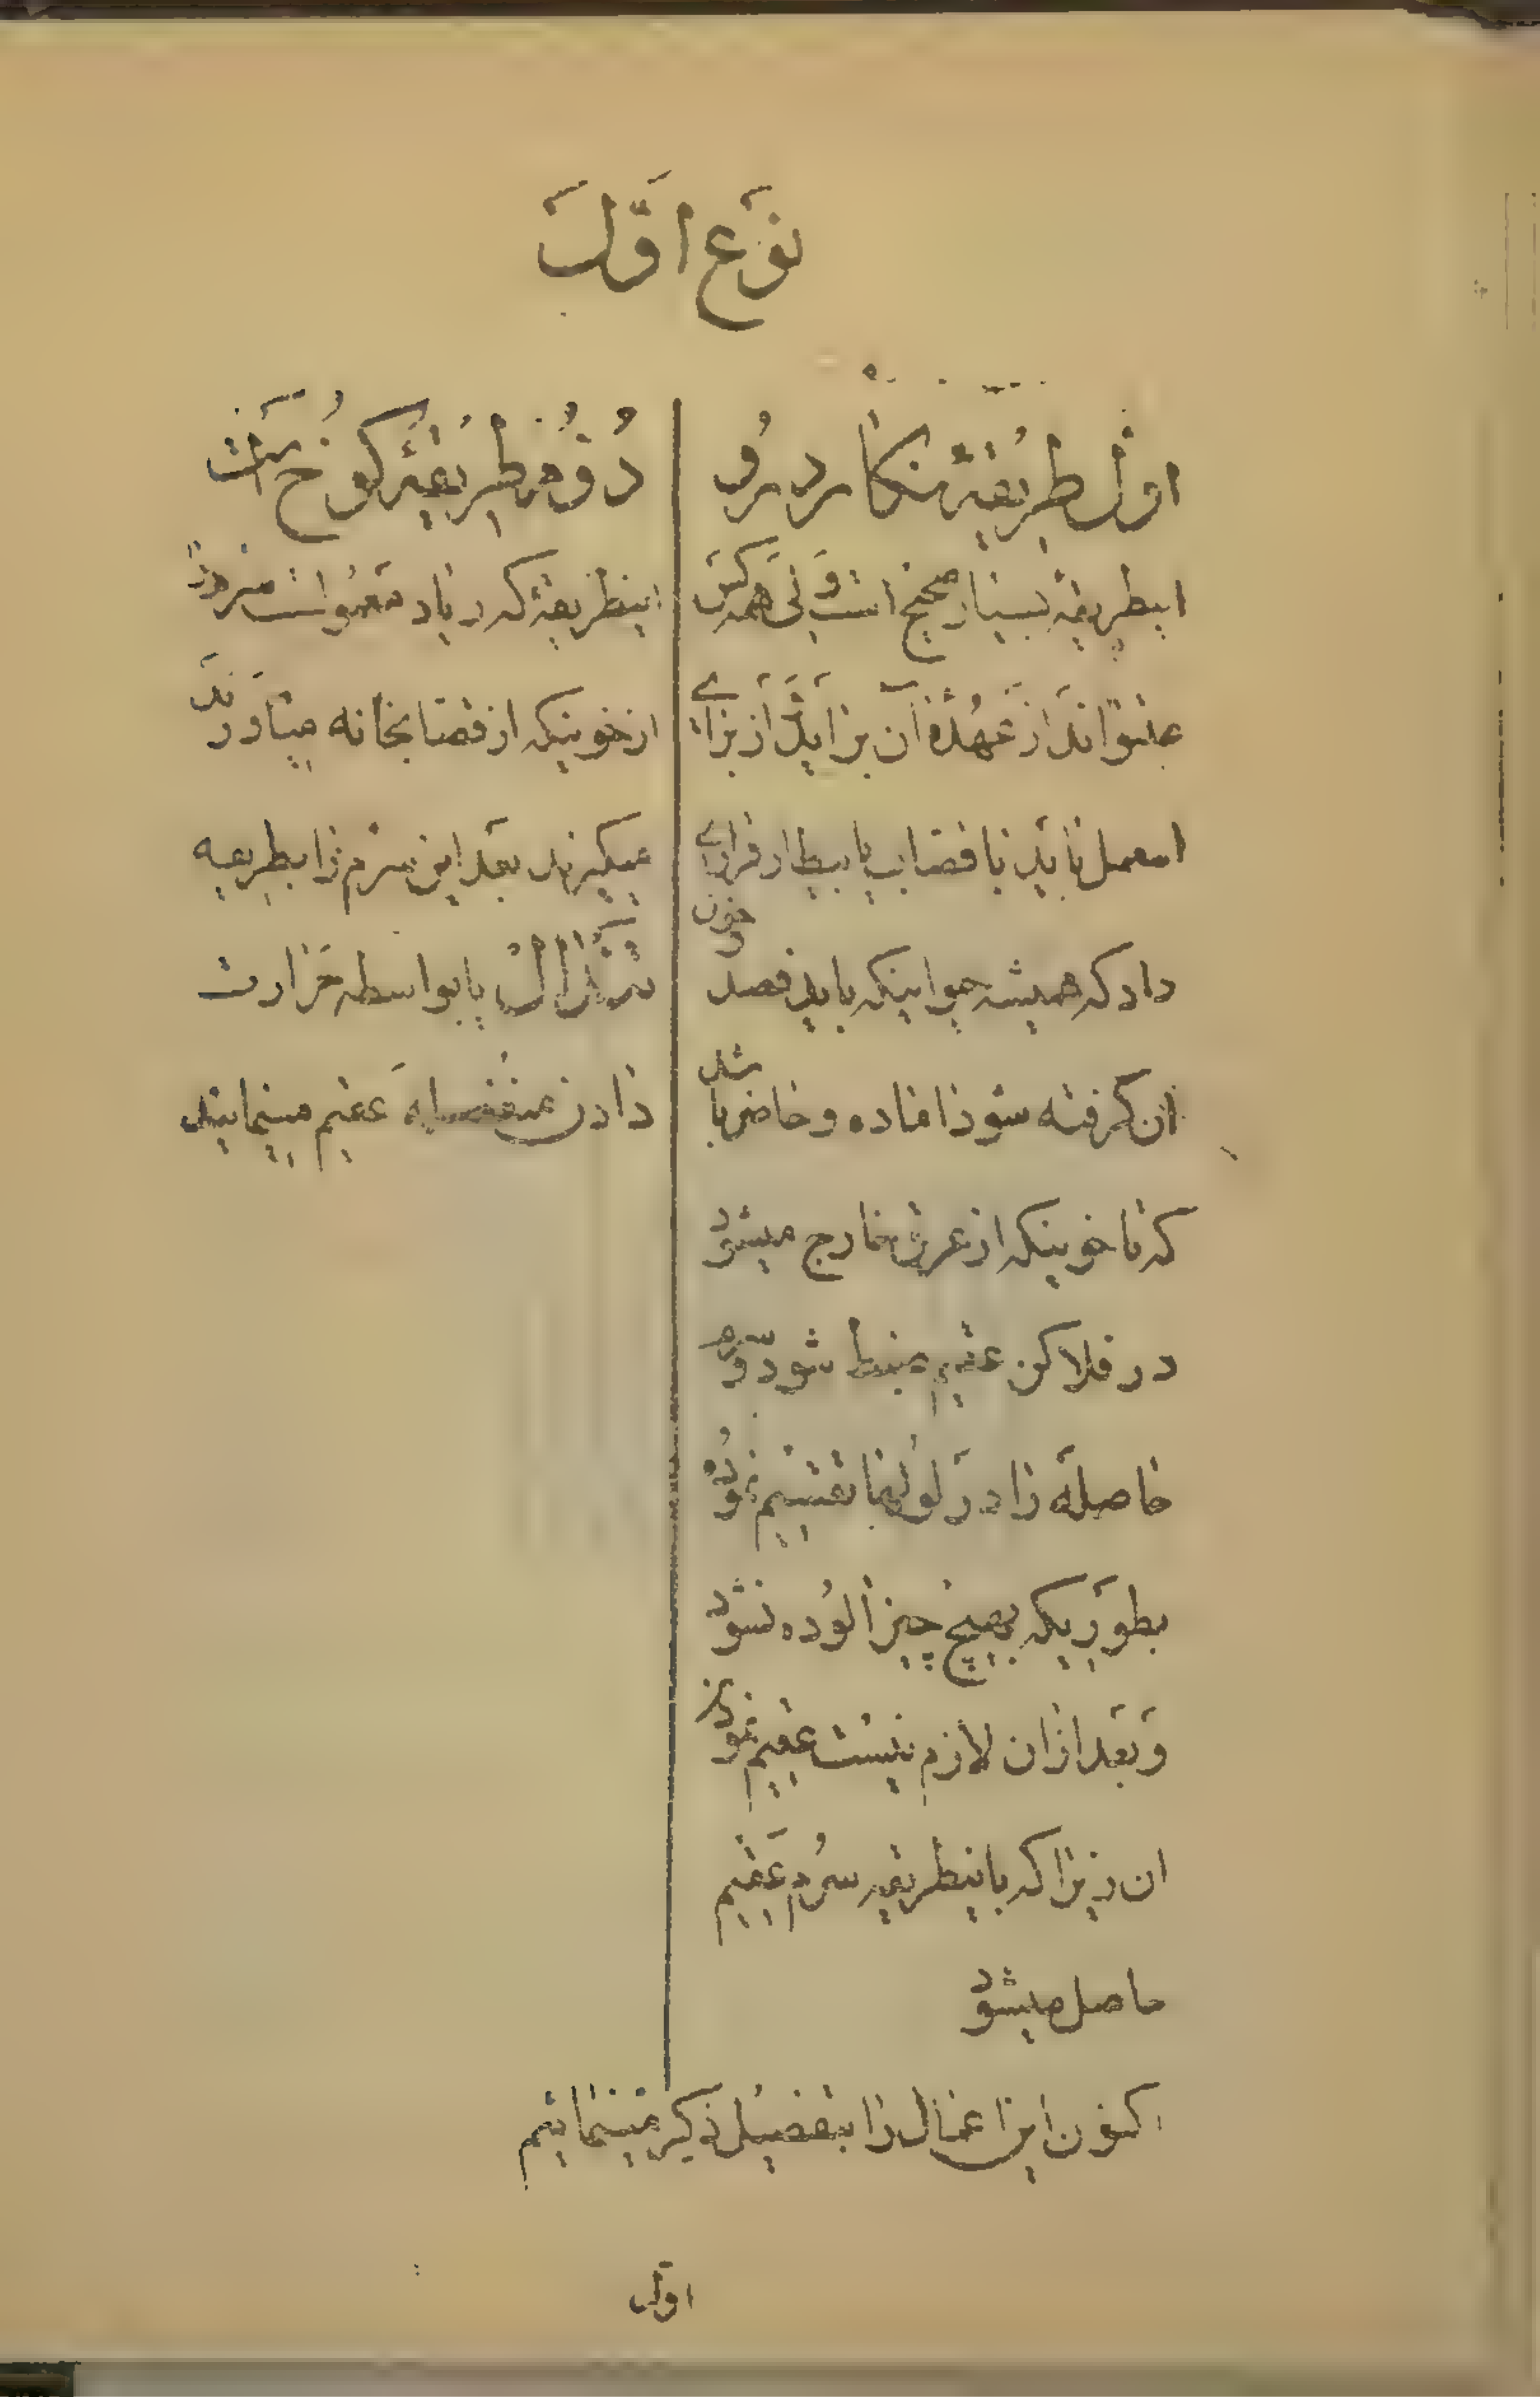 نوع اول
اول طریقه نکارد رو
اینطریقه بسیار صحیح است ولی همه کس
نمیتواند از عهده آن برآید از برای
اینعمل باید با قصاب یا بیطار قراری
داد که همیشه حیوانیکه باید فصد خون
از آن گرفته شود آماده و حاضر باشد
که تا خونیکه از عرق خارج میشود
در فلاکن عقیم ضبط شود و سرم
حاصله را در لوله‌ها تقسیم نموده
بطوریکه بهیچ چیز آلوده نشود
و بعد از آن لازم نیست عقیم نمودن
آن زیرا که باینطریقه سرم عقیم
حاصل میشود
دوم طریقه کخ است
اینطریقه که زیاد معمول است سرم را
از خونیکه از قصابخانه میآورند
میگیرند بعد این سرم را بطریقه
تندال یا بواسطه حرارت
دادن عقیم مینمایند
اکنون این اعمال را بتفضیل ذکر مینمائیم
اول